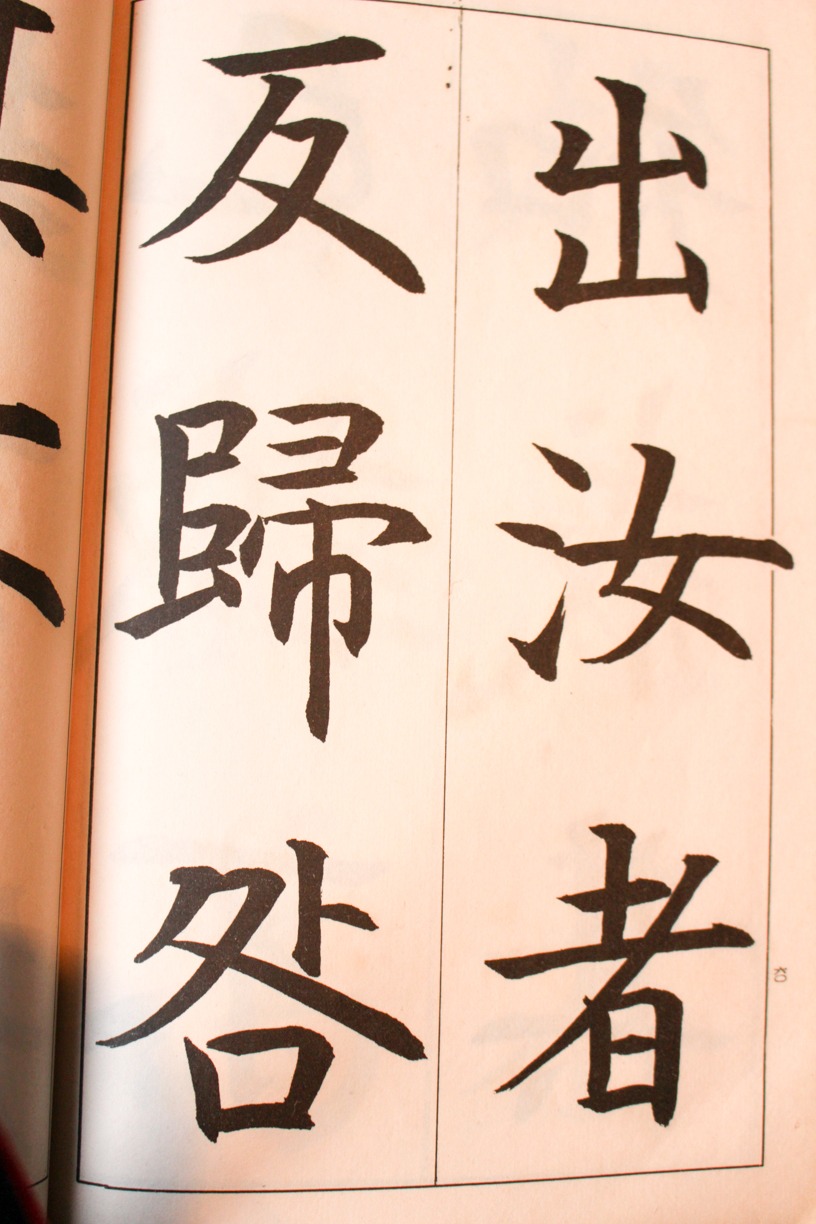 出汝者
反歸咎